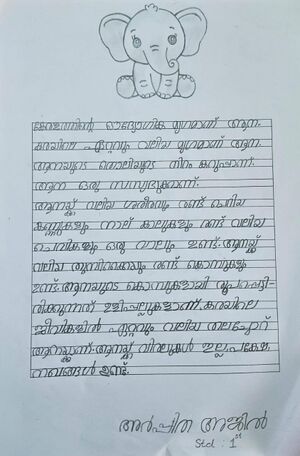 കേരളത്തിന്റെ ഔദ്യോഗിക മൃഗമാണ് ആന.
കരയിലെ ഏറ്റവും വലിയ മൃഗമാണ് ആന.
ആനയുടെ തൊലിയുടെ നിറം കറുപ്പാണ്.
ആന ഒരു സസ്യഭുക്കാണ്.
ആനയ്ക്ക് വലിയ ശരീരവും രണ്ട് ചെറിയ
കണ്ണുകളും നാല് കാലുകളും രണ്ട് വലിയ
ചെവികളും ഒരു വാലും ഉണ്ട്. ആനയ്ക്ക്
വലിയ തുമ്പിക്കൈയും രണ്ട് കൊമ്പുകളും
ഉണ്ട്. ആനയുടെ കൊമ്പുകളായി രൂപപ്പെട്ടി-
രിക്കുന്നത് ഉളിപ്പല്ലുകളാണ്. കരയിലെ
ജീവികളിൽ ഏറ്റവും വലിയ തലച്ചോറ്
ആനയ്ക്കാണ്. ആനയ്ക്ക് വിരലുകൾ ഇല്ല പക്ഷേ
നഖങ്ങൾ ഉണ്ട്.
അർപ്പിത അജിൽ
Std : 1st